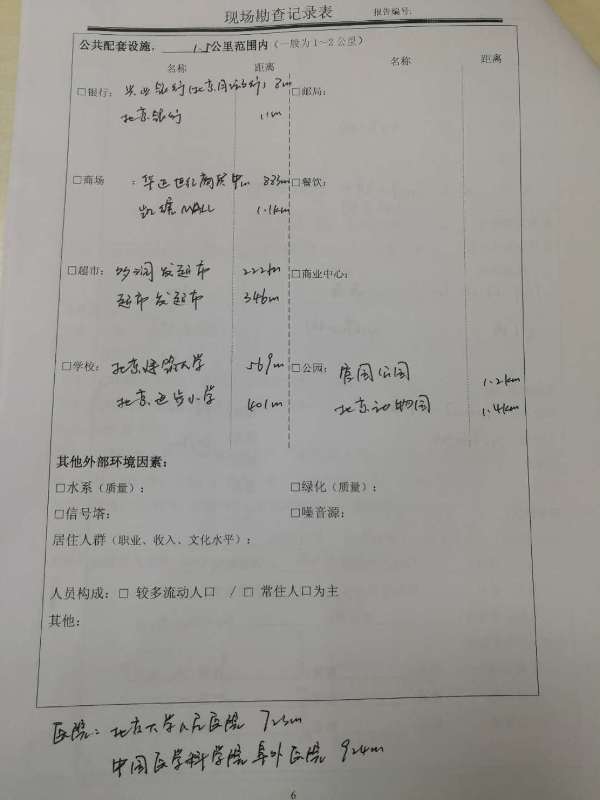 现场勘查记录表 报告编号:
公共配套设施。 1.5公里范围内(一般为1~2公里)
名称 距离 名称 距离
□银行: 兴业银行(北京月坛支行) 8m □邮局:
北京银行 11m
□商场 : 华远世纪商贸中心 883m □餐饮:
凯德MALL 1.1km
□超市: 发超市 222m □商业中心:
超市发超市 346m
□学校: 北京建筑大学 569m □公园: 官园公园 1.2km
北京进步小学 401m 北京动物园 1.4km
其他外部环境因素:
□水系(质量): □绿化(质量):
□信号塔: □噪音源:
居住人群(职业、收入、文化水平):
人员构成: □ 较多流动人口 / □ 常住人口为主
其他:
医院: 北京大学人民医院 723m
中国医学科学院阜外医院 924m
6